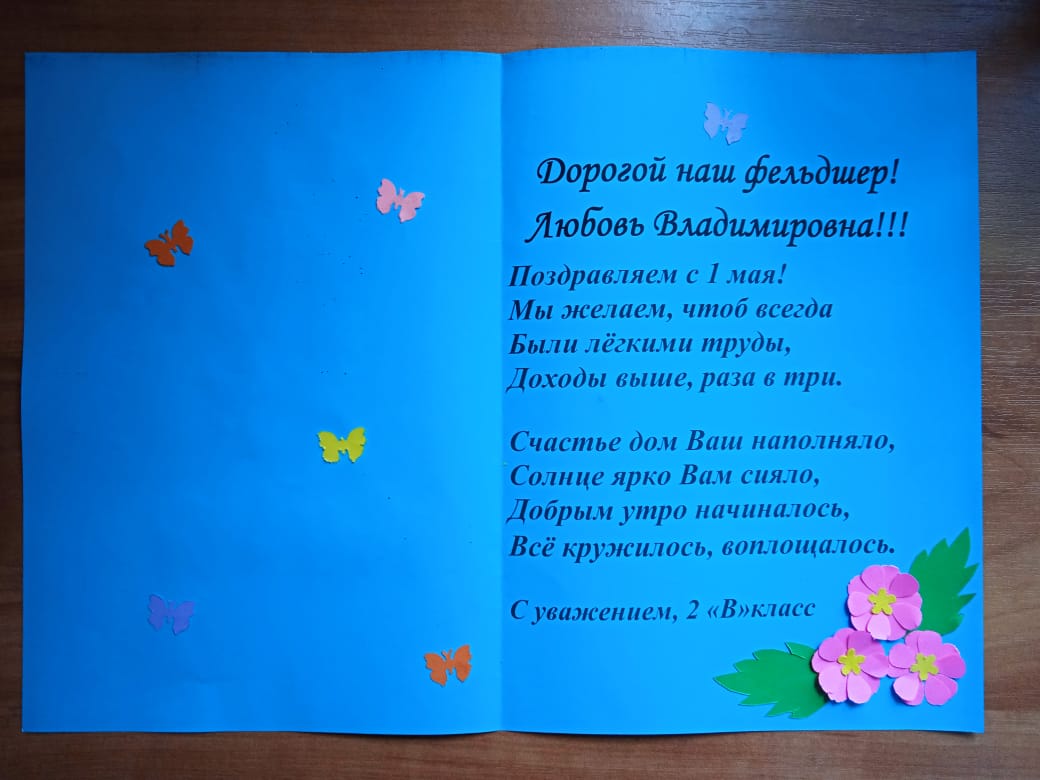 Дорогой наш фельдшер!
Любовь Владимировна!!!
Поздравляем с 1 мая!
Мы желаем, чтоб всегда
Были лёгкими труды,
Доходы выше, раза в три.
Счастье дом Ваш наполняло,
Солнце ярко Вам сияло,
Добрым утро начиналось,
Всё кружилось, воплощалось.
С уважением, 2 «В»класс